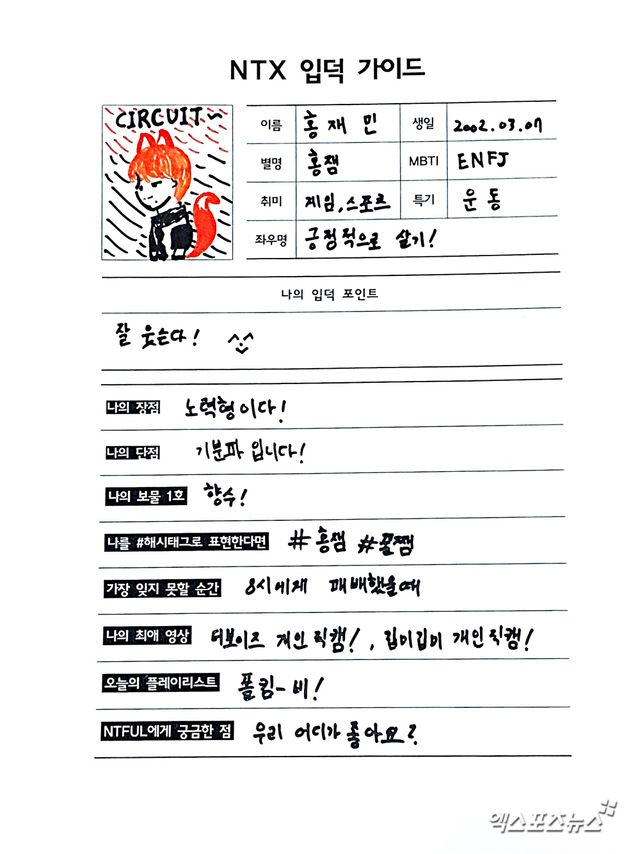 NTX 입덕 가이드
CIRCUIT~
이름 홍재민 생일 2002.03.07
별명 홍잼 MBTI ENFJ
취미 게임, 스포츠 특기 운동
좌우명 긍정적으로 살기!
나의 입덕 포인트
잘 웃는다! ^^
나의 장점 노력형이다!
나의 단점 기분파 입니다!
나의 보물 1호 향수!
나를 #해시태그로 표현한다면 #홍잼 #꿀잼
가장 잊지 못할 순간 8시에게 패배했을때
나의 최애 영상 더보이즈 개인직캠!, 립이립이 개인직캠!
오늘의 플레이리스트 폴킴-비!
NTFUL에게 궁금한 점 우리 어디가 좋아요?
엑스포츠뉴스